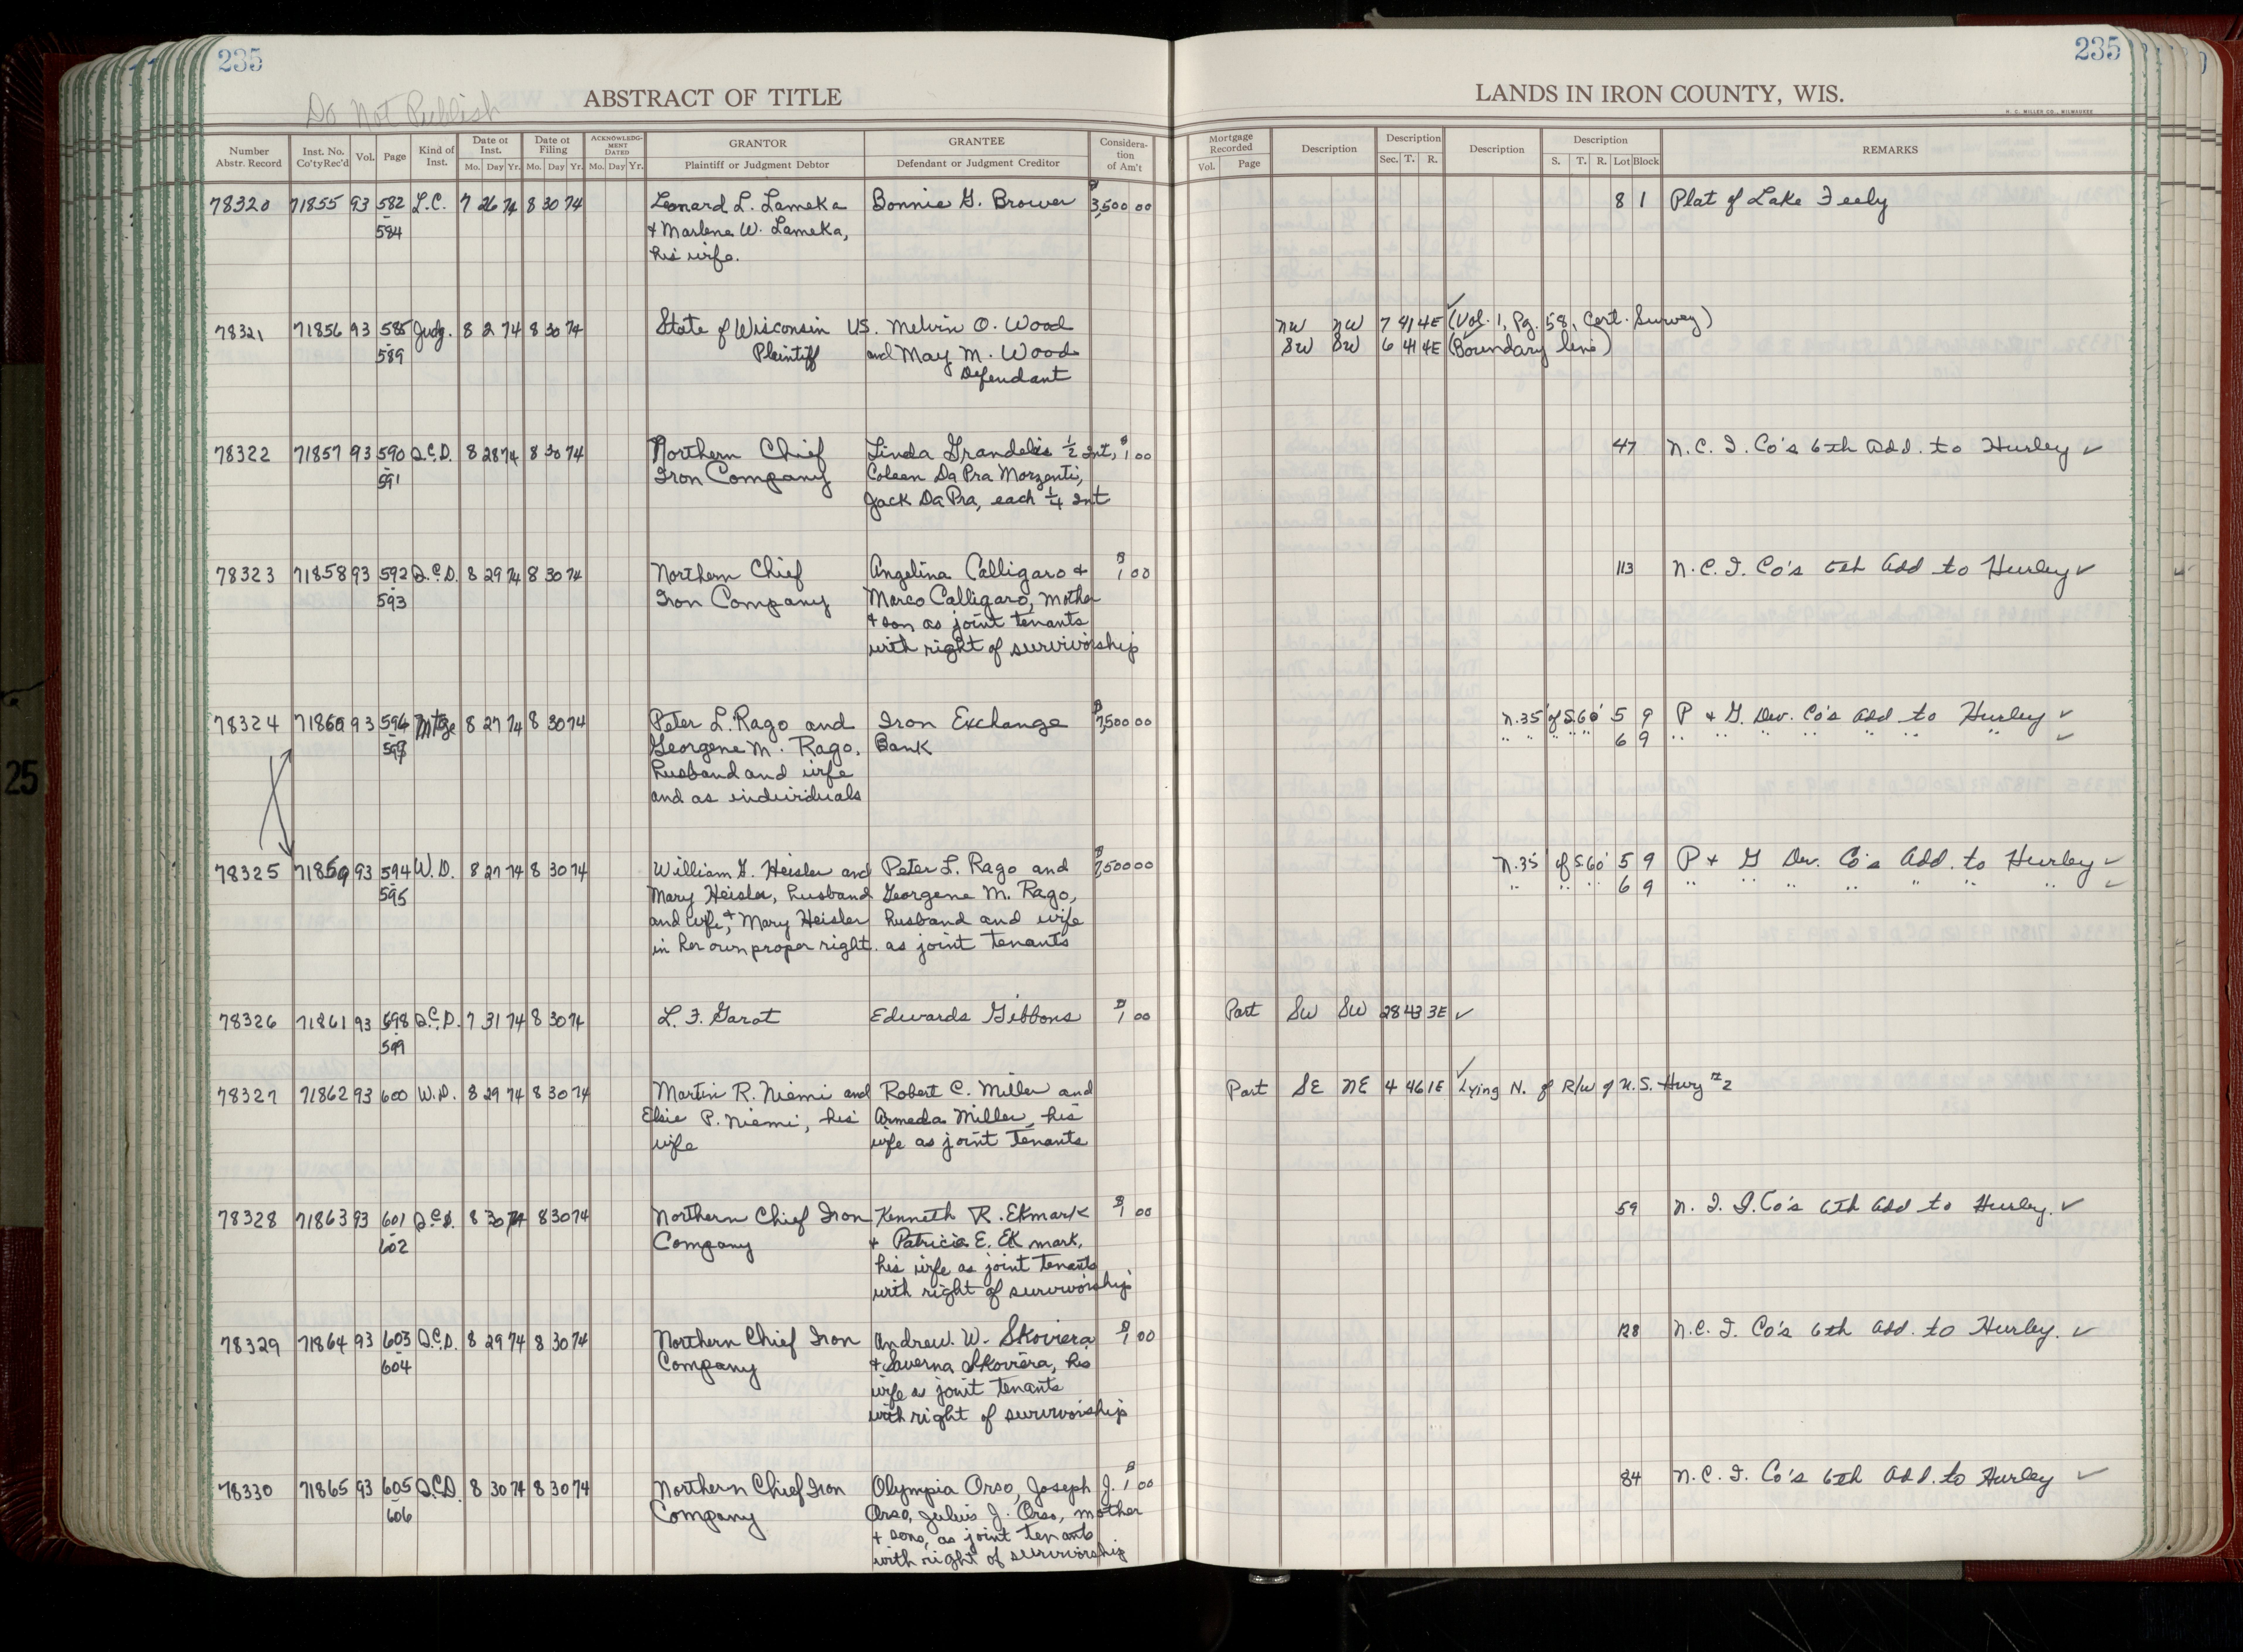 235
235
Do Not Publish
ABSTRACT OF TITLE
LANDS IN IRON COUNTY, WIS.
H. C. MILLER CO., MILWAUKEE
Number Abstr. Record | Inst. No. Co'ty Rec'd | Vol. | Page | Kind of Inst. | Date of Inst. Mo. Day Yr. | Date of Filing Mo. Day Yr. | ACKNOWLEDGMENT DATED Mo. Day Yr. | GRANTOR Plaintiff or Judgment Debtor | GRANTEE Defendant or Judgment Creditor | Consideration of Am't | Mortgage Recorded Vol. Page | Description | Description Sec. T. R. | Description | Description S. T. R. Lot Block | REMARKS
78320 71855 93 582 L.C. 7 26 74 8 30 74 Leonard L. Lameka Bonnie G. Brower $3,500 00 8 1 Plat of Lake Feely
584 + Marlene W. Lameka,
his wife.
78321 71856 93 585 Judg. 8 2 74 8 30 74 State of Wisconsin VS. Melvin O. Wood NW NW 7 41 4E ✓ (Vol. 1, Pg. 58, Cert. Survey)
589 Plaintiff and May M. Wood SW SW 6 41 4E (Boundary line)
Defendant
78322 71857 93 590 Q.C.D. 8 28 74 8 30 74 Northern Chief Linda Grandelis ½ Int, $1 00 47 N.C.I. Co's 6th Add. to Hurley ✓
591 Iron Company Coleen Da Pra Morzenti,
Jack Da Pra, each ¼ Int
78323 71858 93 592 Q.C.D. 8 29 74 8 30 74 Northern Chief Angelina Calligaro + $1 00 113 N.C.I. Co's 6th Add to Hurley ✓
593 Iron Company Marco Calligaro, mother
+ son as joint tenants
with right of survivorship
78324 71860 93 596 Mtge 8 27 74 8 30 74 Peter L. Rago and Iron Exchange $7,500 00 N.35' of S.60' 5 9 P + G. Dev. Co's Add to Hurley ✓
Georgene M. Rago, Bank " " " " " 6 9 " " " " " " " ✓
husband and wife
and as individuals
78325 71859 93 594 W.D. 8 27 74 8 30 74 William G. Heisler and Peter L. Rago and $7,500 00 N.35' of S60' 5 9 P + G Dev. Co's Add. to Hurley ✓
595 Mary Heisler, husband Georgene M. Rago, " " " 6 9 " " " " " " " ✓
and wife, + Mary Heisler husband and wife
in her own proper right. as joint tenants
78326 71861 93 598 Q.C.D. 7 31 74 8 30 74 L. F. Garot Edwards Gibbons $1 00 Part SW SW 28 43 3E ✓
599
78327 71862 93 600 W.D. 8 29 74 8 30 74 Martin R. Niemi and Robert C. Miller and Part SE NE 4 46 1E ✓ Lying N. of R/W of U.S. Hwy #2
Elsie P. Niemi, his Armeda Miller, his
wife wife as joint tenants
78328 71863 93 601 Q.C.D. 8 30 74 8 30 74 Northern Chief Iron Kenneth R. Ekmark $1 00 59 N. I. I. Co's 6th Add to Hurley. ✓
602 Company + Patricia E. Ekmark,
his wife as joint tenants
with right of survivorship
78329 71864 93 603 Q.C.D. 8 29 74 8 30 74 Northern Chief Iron Andrew W. Skoviera $1 00 128 N.C.I. Co's 6th Add. to Hurley. ✓
604 Company + Saverna Skoviera, his
wife as joint tenants
with right of survivorship
78330 71865 93 605 Q.C.D. 8 30 74 8 30 74 Northern Chief Iron Olympia Orso, Joseph J. $1 00 84 N.C.I. Co's 6th Add. to Hurley ✓
606 Company Orso, Julius J. Orso, mother
+ sons, as joint tenants
with right of survivorship
25